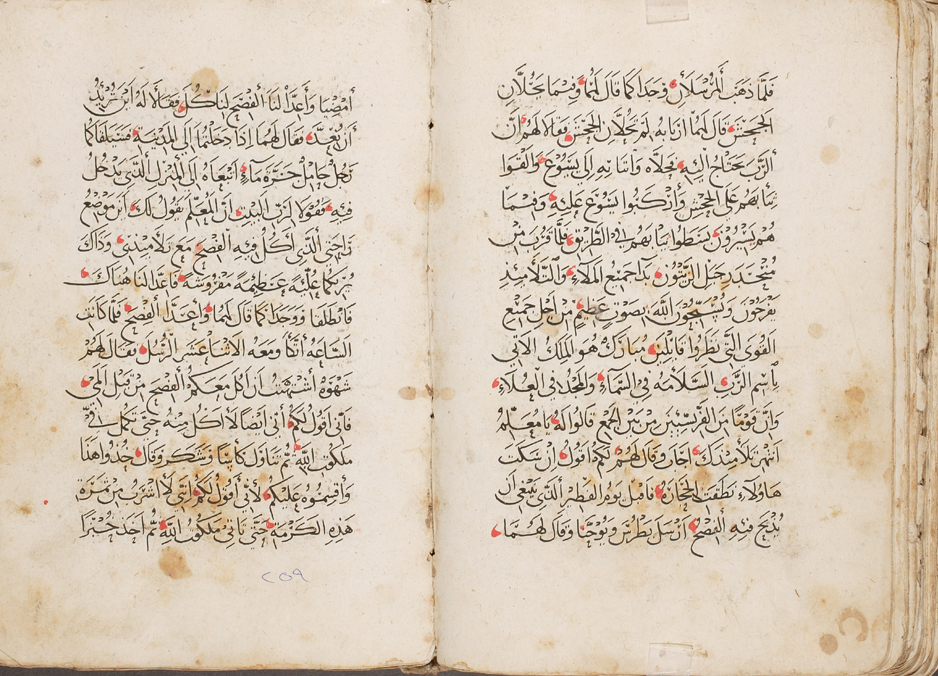 فلما ذهب المرسلان وجدا كما قال لهما وفيما يحلان
الجحش قال لهما اربابه لم تحلان الجحش فقالا لهم ان
الرب يحتاج اليه فجلاه واتيا به الى يسوع والقوا
ثيابهم على الجحش واركبوا يسوع عليه وفيما
هم يسيرون بسطوا ثيابهم في الطريق فلما قرب من
منحدر جبل الزيتون بدا جميع الملاء والتلاميذ
يفرحون ويسبحون الله بصوت عظيم من اجل جميع
القوى التي نظروا قايلين مبارك هو الملك الاتي
باسم الرب السلامه في السماء والمجد في العلاء
وان قوما من الفريسيين من بين الجمع قالوا له يا معلم
انتهر تلاميذك اجاب وقال لهم لكم اقول ان سكت
هاولاء نطقت الحجارة فاقبل يوم الفطير الذي ينبغي ان
يذبح فيه الفصح ارسل بطرس ويوحنا وقال لهما
امضيا واعدا لنا الفصح لناكل فقالا له اين تريد
ان نعد فقال لهما اذا دخلتما الى المدينة فسيلقاكما
رجل حامل جرة ماء اتبعاه الى المنزل الذي يدخل
فيه فقولا لرب البيت ان المعلم يقول لك اين موضع
راحتي الذي اكل فيه الفصح مع تلاميذي وذاك
يريكما علية عظيمة مفروشة فاعدا لنا هناك
فانطلقا ووجدا كما قال لهما واعتدا الفصح فلما كانت
الساعه اتكا ومعه الاثنا عشر الرسل وقال لهم
شهوة اشتهيت ان اكل معكم الفصح من قبل المي
فاني اقول لكم اني ايضا لا اكل منه حتى تكمل في
ملكوت الله ثم تناول كاسا وشكر وقال خذوا هذا
واقسموه عليكم لاني اقول لكم اني لا اشرب من ثمرة
هذه الكرمة حتى تاتي ملكوت الله ثم اخذ خبزا
٢٥٩